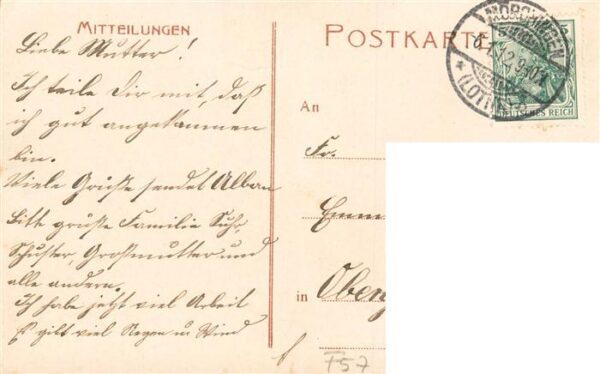 MITTEILUNGEN
Liebe Mutter!
Ich teile Dir mit, daß
ich gut angekommen
bin.
Viele Grüße sendet Alban
Bitte grüße Familie
Schuster, Großmutter und
alle andern.
Ich habe jetzt viel Arbeit
Es gibt viel Regen u Wind
POSTKARTE
MÖRCHINGEN
(LOTHR.)
DEUTSCHES REICH
An
Fr.
in
F57